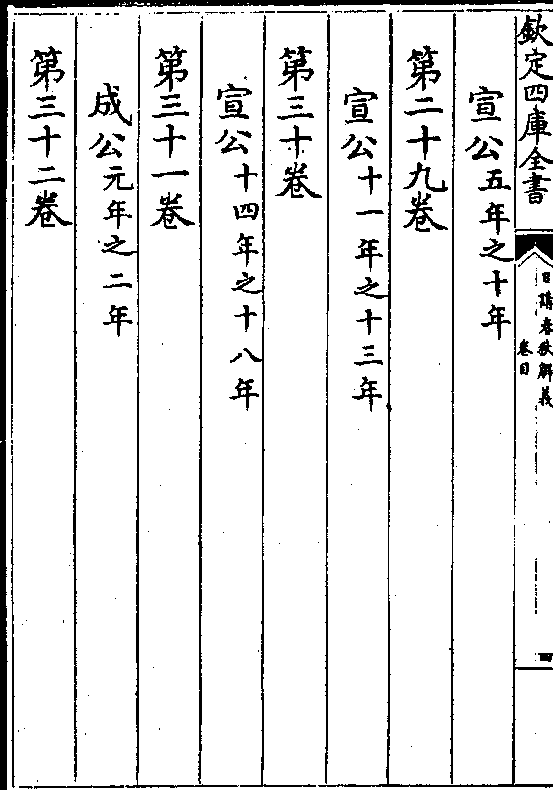 欽定四庫全書
日講春秋解義
卷目
四
宣公五年之十年
第二十九卷
宣公十一年之十三年
第三十卷
宣公十四年之十八年
第三十一卷
成公元年之二年
第三十二卷